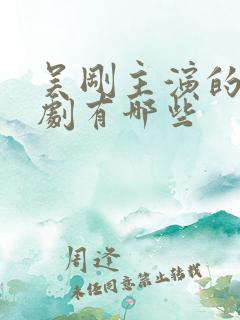 吴刚主演的
劇有哪些
周逢
未经同意禁止转载